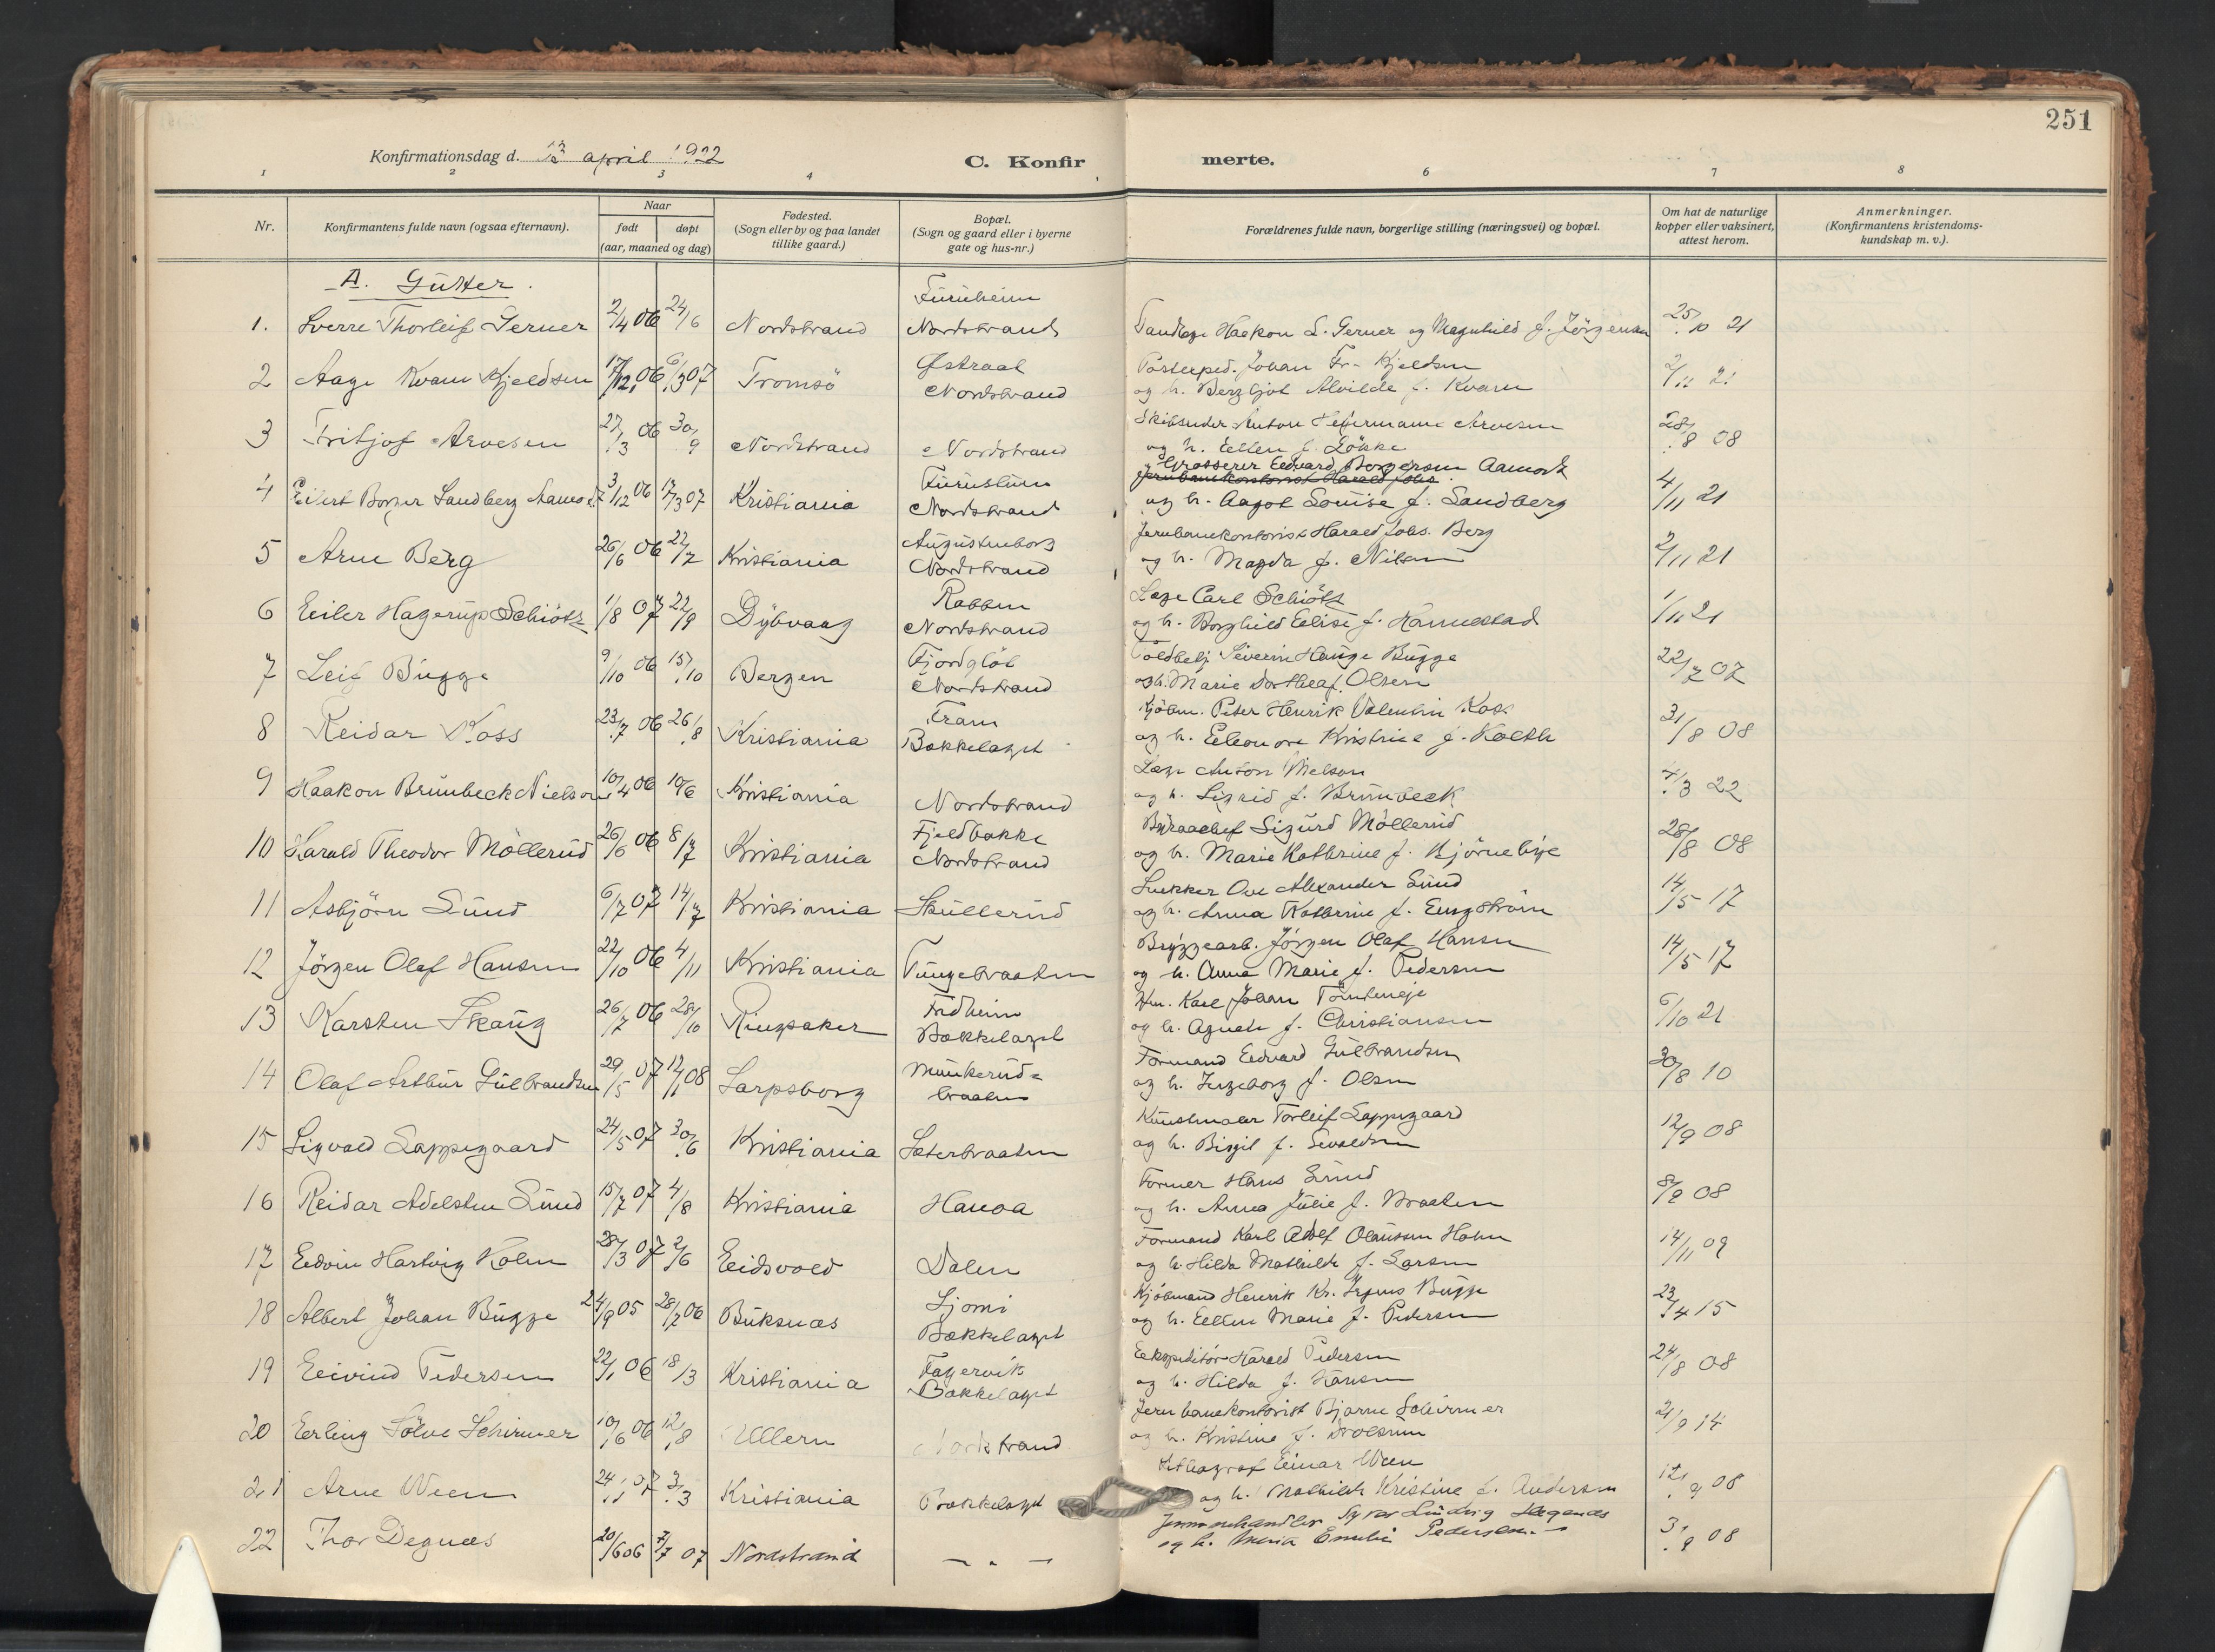 251
Konfirmationsdag d. april 1922
C. Konfirmerte.
1 2 3 4 6 7 8
Nr.
Konfirmantens fulde navn (ogsaa efternavn).
Naar
født døpt
(aar, maaned og dag)
Fødested.
(Sogn eller by og paa landet
tillike gaard.)
Bopæl.
(Sogn og gaard eller i byerne
gate og hus-nr.)
Forældrenes fulde navn, borgerlige stilling (næringsvei) og bopæl.
Om hat de naturlige
kopper eller vaksinert,
attest herom.
Anmerkninger.
(Konfirmantens kristendoms-
kundskap m. v.).
A. Gutter.
1. Sverre Thorleif Gerner 2/4 06 24/6 Nordstrand Furuheim Nordstrand
Tandlæge Haakon L. Gerner og Magnhild f. Jörgensen 25/10 21
2 Aage Kvam Kjeldsen 17/12 06 6/3 07 Tromsö Østraat Nordstrand
Postexped. Johan Fr. Kjeldsen
og h. Bergljot Alvilde f. Kvam 2/11 21
3 Fritjof Arvesen 27/3 06 30/9 Nordstrand Nordstrand
Anton Hermann Arvesen
og h. Ellen f. Lökke 28/8 08
4 Eilert Borger Sandberg Aamodt 3/12 06 17/3 07 Kristiania Nordstrand
Grosserer Edvard Borgersen Aamodt
Jernbanekontorist Harald Johs.
og h. Aagot Louise f. Sandberg 4/11 21
5 Arne Berg 26/6 06 22/7 Kristiania Augustenborg Nordstrand
Jernbanekontorist Harald Johs. Berg
og h. Magda f. Nilsen 2/11 21
6 Eiler Hagerup Schiötz 1/8 07 22/9 Dybvaag Rabben Nordstrand
Læge Carl Schiötz
og h. Borghild Elise f. Hannestad 1/11 21
7 Leif Bugge 9/10 06 15/10 Bergen Fjordglöt Nordstrand
Toldbetj. Severin Hauge Bugge
og h. Marie Dorthea f. Olsen 22/7 07
8 Reidar Koss 23/7 06 26/8 Kristiania Fram Bækkelaget
Kjöbm. Peter Henrik Valentin Koss
og h. Eleonore Kristine f. Kolth 31/8 08
9 Haakon Brunbeck Nielson 10/4 06 10/6 Kristiania Nordstrand
Læge Anton Nielson
og h. Sigrid f. Brunbeck 7/3 22
10 Harald Theodor Möllerud 26/6 06 8/7 Kristiania Fjeldbakke Nordstrand
Byraachef Sigurd Möllerud
og h. Marie Kathrine f. Björnebye 28/8 08
11 Asbjörn Lund 6/7 07 14/7 Kristiania Skullerud
Snekker Ove Alexander Lund
og h. Anna Kathrine f. Engström 14/5 17
12 Jörgen Olaf Hansen 22/10 06 4/11 Kristiania Tungebraaten
Bryggearb. Jörgen Olaf Hansen
og h. Anna Marie f. Pedersen 14/5 17
13 Karsten Skaug 26/7 06 28/10 Ringsaker Fredheim Bækkelaget
Karl Johan
og h. Agnete f. Christiansen 6/10 21
14 Olaf Arthur Gulbrandsen 29/5 07 12/1 08 Sarpsborg Munkerud-braaten
Formand Edvard Gulbrandsen
og h. Ingeborg f. Olsen 30/8 10
15 Sigvald Lappegaard 24/5 07 30/6 Kristiania Sæterbraaten
Kunstmaler Torleif Lappegaard
og h. Birgit f. Sevaldsen 12/9 08
16 Reidar Adelsten Lund 15/7 07 4/8 Kristiania Hauoa
Former Hans Lund
og h. Anna Julie f. Braaten 8/9 08
17 Edvin Hartvig Holm 28/3 07 2/6 Eidsvold Dalen
Formand Karl Adolf Olaussen Holm
og h. Hilda Mathilde f. Larsen 14/11 09
18 Albert Johan Bugge 24/9 05 28/7 06 Buksnæs Ljomi Bækkelaget
Kjöbmand Henrik Kr. Bugge
og h. Ellen Marie f. Pedersen 23/4 15
19 Eivind Pedersen 22/1 06 18/3 Kristiania Fagervik Bækkelaget
Ekspeditör Harald Pedersen
og h. Hilda f. Hansen 24/8 08
20 Erling Sölve Schirmer 10/6 06 12/8 Ullern Nordstrand
Jernbanekontorist Bjarne Schirmer
og h. Kristine f. Drolsum 21/9 14
21 Arne Ween 24/1 07 3/3 Kristiania Bækkelaget
Lithograf Einar Ween
og h. Mathilde Kristine f. Andersen 12/9 08
22 Thor Degnæs 20/6 06 7/7 07 Nordstrand — " —
Ludvig Degnæs
og h. Maria Emilie Pedersen. 3/9 08